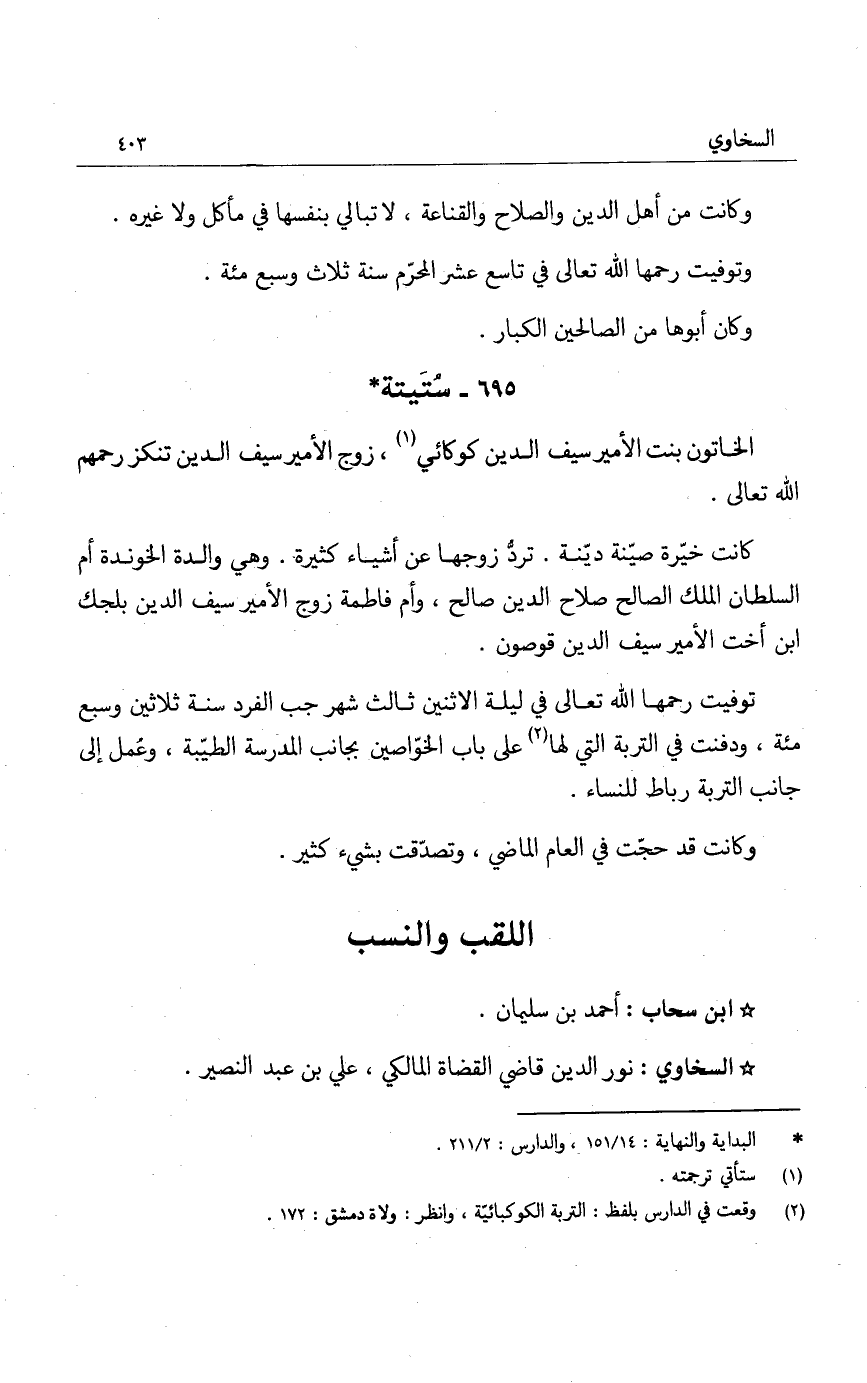 السخاوي ٤٠٣
وكانت من أهل الدين والصلاح والقناعة ، لا تبالي بنفسها في مأكل ولا غيره .
وتوفيت رحمها الله تعالى في تاسع عشر المحرّم سنة ثلاث وسبع مئة .
وكان أبوها من الصالحين الكبار .
٦٩٥ ـ سُتَيتة*
الخاتون بنت الأمير سيف الدين كوكائي(١) ، زوج الأمير سيف الدين تنكز رحمهم
الله تعالى .
كانت خيّرة صيّنة ديّنة . تردُّ زوجها عن أشياء كثيرة . وهي والدة الخوندة أم
السلطان الملك الصالح صلاح الدين صالح ، وأم فاطمة زوج الأمير سيف الدين بلجك
ابن أخت الأمير سيف الدين قوصون .
توفيت رحمها الله تعالى في ليلة الاثنين ثالث شهر جب الفرد سنة ثلاثين وسبع
مئة ، ودفنت في التربة التي لها(٢) على باب الخوّاصين بجانب المدرسة الطيّبة ، وعُمل إلى
جانب التربة رباط للنساء .
وكانت قد حجّت في العام الماضي ، وتصدّقت بشيء كثير .
اللقب والنسب
☆ ابن سحاب : أحمد بن سليمان .
☆ السخاوي : نور الدين قاضي القضاة المالكي ، علي بن عبد النصير .
* البداية والنهاية : ١٥١/١٤ ، والدارس : ٢١١/٢ .
(١) ستأتي ترجمته .
(٢) وقعت في الدارس بلفظ : التربة الكوكبائيّة ، وانظر : ولاة دمشق : ١٧٢ .